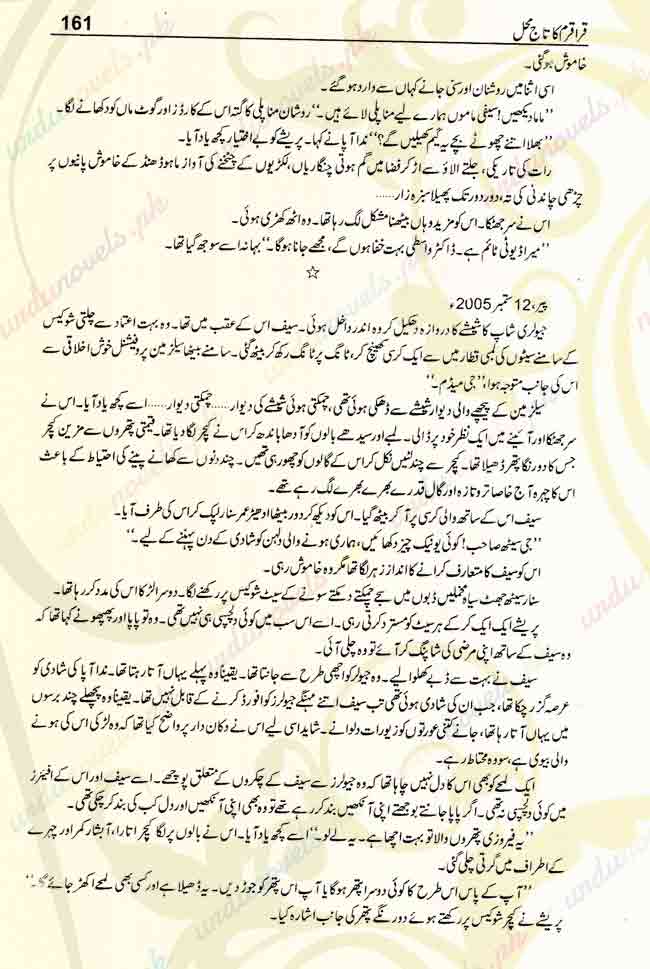 161
قراقرم کا تاج محل
خاموش ہو گئی۔
اسی اثنا میں روشنان اور سنی جانے کہاں سے وارد ہو گئے۔
”ماما دیکھیں! سیفی ماموں ہمارے لیے مناپلی لائے ہیں۔“ روشان مناپلی کا گتہ اس کے کارڈز اور گوٹ ماں کو دکھانے لگا۔
”بھلا اتنے چھوٹے بچے یہ گیم کھیلیں گے؟“ ندا آپا نے کہا۔ پریشے کو بے اختیار کچھ یاد آیا۔
رات کی تاریکی، جلتے الاؤ سے اڑ کر فضا میں گم ہوتی چنگاریاں، لکڑیوں کے چٹخنے کی آواز، ماہوڈھنڈ کے خاموش پانیوں پر
چڑھی چاندنی کی تہ، دور دور تک پھیلا سبزہ زار......
اس نے سر جھٹکا۔ اس کو مزید وہاں بیٹھنا مشکل لگ رہا تھا۔ وہ اٹھ کھڑی ہوئی۔
”میرا ڈیوٹی ٹائم ہے۔ ڈاکٹر واسطی بہت خفا ہوں گے، مجھے جانا ہوگا۔“ بہانہ اسے سوجھ گیا تھا۔
☆
پیر، 12 ستمبر 2005ء
جیولری شاپ کا شیشے کا دروازہ دھکیل کر وہ اندر داخل ہوئی۔ سیف اس کے عقب میں تھا۔ وہ بہت اعتماد سے چلتی شوکیس
کے سامنے سیٹوں کی لمبی قطار میں سے ایک کرسی کھینچ کر، ٹانگ پر ٹانگ رکھ کر بیٹھ گئی۔ سامنے بیٹھا سیلز مین پروفیشنل خوش اخلاقی سے
اس کی جانب متوجہ ہوا، ”جی میڈم۔“
سیلز مین کے پیچھے والی دیوار شیشے سے ڈھکی ہوئی تھی، چمکتی ہوئی شیشے کی دیوار...... چمکتی دیوار...... اسے کچھ یاد آیا۔ اس نے
سر جھٹکا اور آئینے میں ایک نظر خود پر ڈالی۔ لمبے اور سیدھے بالوں کو آدھا باندھ کر اس نے کیچر لگا دیا تھا۔ قیمتی پتھروں سے مزین کیچر
جس کا دورنگا پتھر ڈھیلا تھا۔ کیچر سے چند لٹیں نکل کر اس کے گالوں کو چھو رہی تھیں۔ چند دنوں سے کھانے پینے کی احتیاط کے باعث
اس کا چہرہ آج خاصا تروتازہ اور گال قدرے بھرے بھرے لگ رہے تھے۔
سیف اس کے ساتھ والی کرسی پر آ کر بیٹھ گیا۔ اس کو دیکھ کر دور بیٹھا ادھیڑ عمر سنار لپک کر اس کی طرف آیا۔
”جی سیٹھ صاحب! کوئی یونیک چیز دکھائیں، ہماری ہونے والی دلہن کو شادی کے دن پہننے کے لیے۔“
اس کو سیف کا متعارف کرانے کا انداز زہر لگا تھا مگر وہ خاموش رہی۔
سنار سیٹھ جھٹ سیاہ مخملیں ڈبوں میں سجے چمکتے دمکتے سونے کے سیٹ شوکیس پر رکھنے لگا۔ دوسرا لڑکا اس کی مدد کر رہا تھا۔
پریشے ایک ایک کر کے ہر سیٹ کو مسترد کرتی رہی۔ اسے اس سب میں کوئی دلچسپی ہی نہیں تھی۔ وہ تو پاپا اور پھپھو نے کہا تھا کہ
وہ سیف کے ساتھ اپنی مرضی کی شاپنگ کر آئے تو وہ چلی آئی۔
سیف نے بہت سے ڈبے کھلوا لیے۔ وہ جیولر کو اچھی طرح سے جانتا تھا۔ یقیناً وہ پہلے یہاں آتا رہتا تھا۔ ندا آپا کی شادی کو
عرصہ گزر چکا تھا، جب ان کی شادی ہوئی تھی تب سیف اتنے مہنگے جیولرز کو افورڈ کرنے کے قابل نہیں تھا۔ یقیناً وہ پچھلے چند برسوں
میں یہاں آتا رہا تھا، جانے کتنی عورتوں کو زیورات دلوانے۔ شاید اسی لیے اس نے دکان دار پر واضح کیا تھا کہ وہ لڑکی اس کی ہونے
والی بیوی ہے، سو وہ محتاط رہے۔
ایک لمحے کو بھی اس کا دل نہیں چاہا تھا کہ وہ جیولرز سے سیف کے چکروں کے متعلق پوچھے۔ اسے سیف اور اس کے افیئرز
میں کوئی دلچسپی نہ تھی۔ اگر پاپا جانتے بوجھتے اپنی آنکھیں بند کر رہے تھے تو وہ بھی اپنی آنکھیں اور دل کب کی بند کر چکی تھی۔
”یہ فیروزی پتھروں والا تو بہت اچھا ہے۔ یہ لے لو۔“ اسے کچھ یاد آیا۔ اس نے بالوں پر لگا کیچر اتارا، آبشار کمر اور چہرے
کے اطراف میں گرتی چلی گئی۔
”آپ کے پاس اس طرح کا کوئی دوسرا پتھر ہوگا یا آپ اس پتھر کو جوڑ دیں۔ یہ ڈھیلا ہے اور کسی بھی لمحے اکھڑ جائے گا۔“
پریشے نے کیچر شوکیس پر رکھتے ہوئے دورنگے پتھر کی جانب اشارہ کیا۔
urdunovels.pk